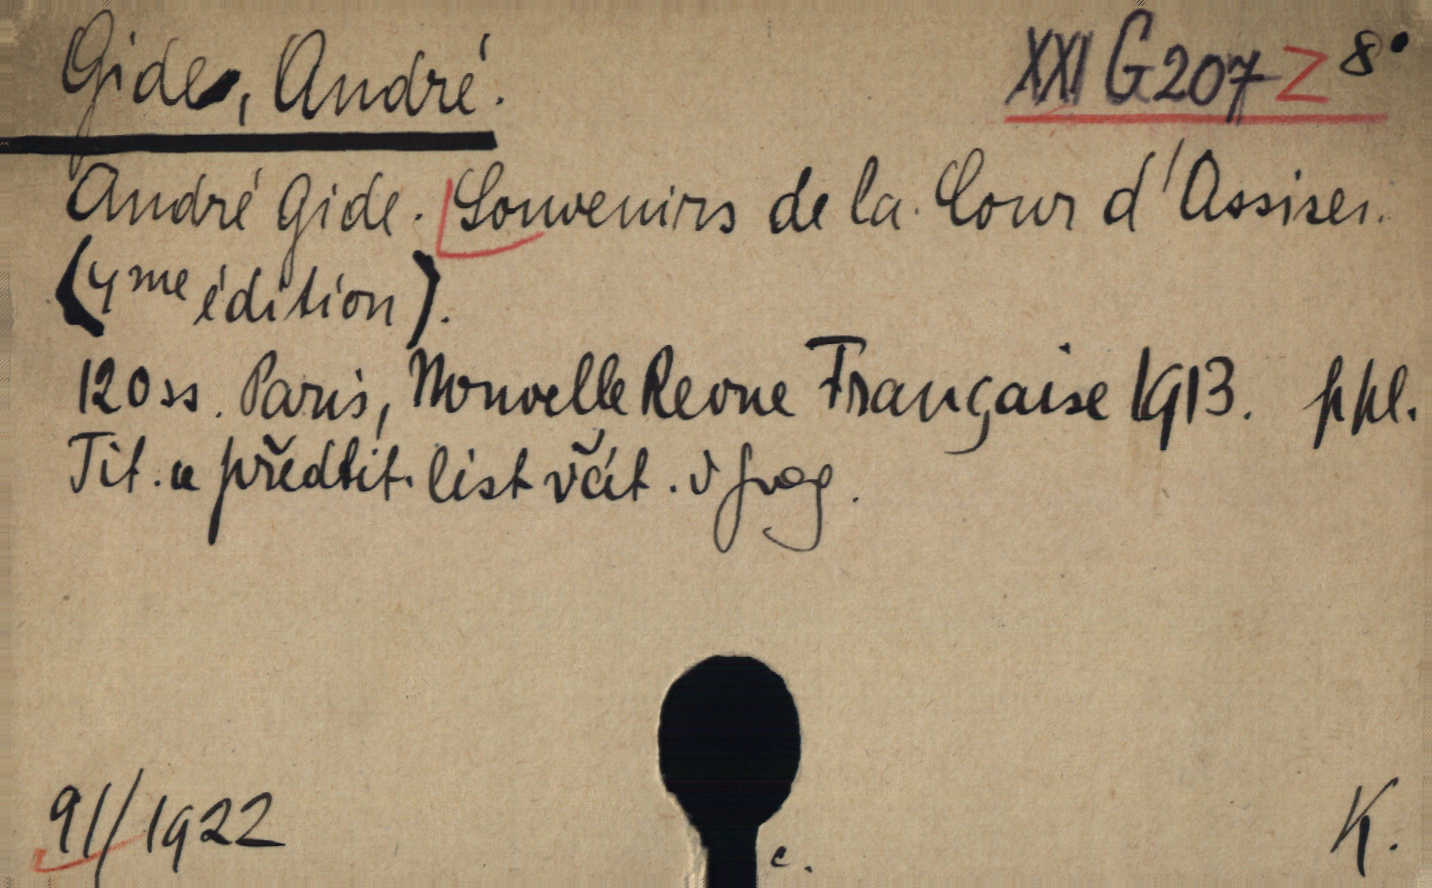 Gide, André. XXI G 207 Z 8°
André Gide. Souvenirs de la Cour d'Assises.
(4me édition).
120 ss. Paris, Nouvelle Revue Française 1913. ppl.
Tit. a předtit. list včít. v pag.
91/1922 c. K.